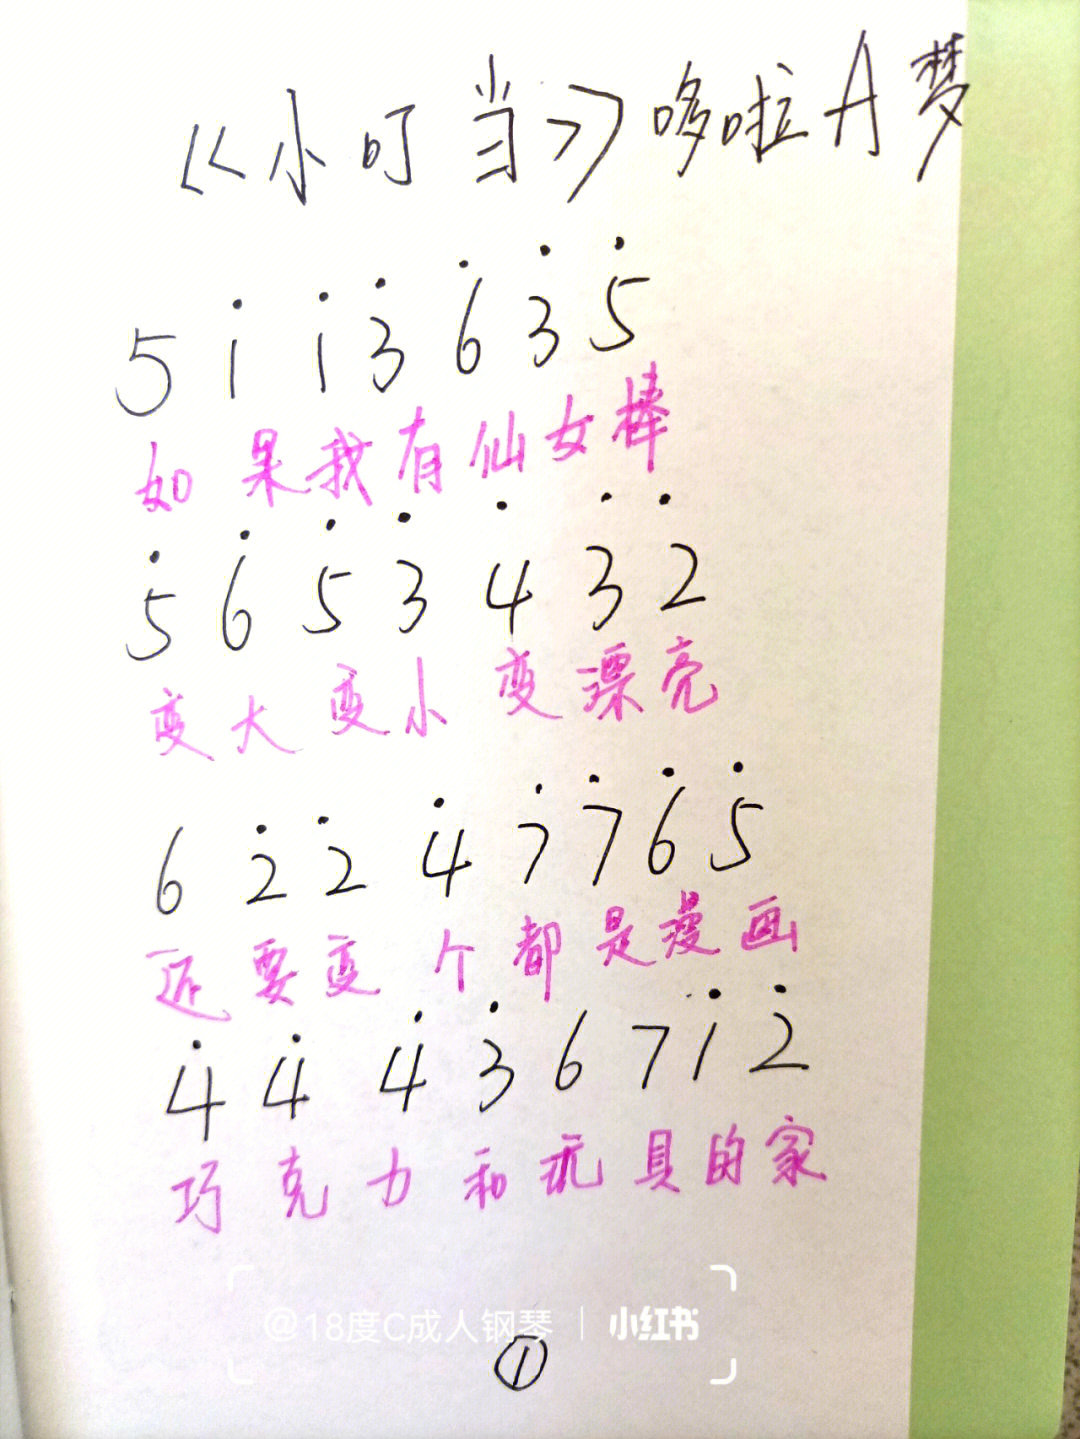 《小叮当》哆啦A梦
5 1̇ 1̇ 3̇ 6̇ 3̇ 5̇
如果我有仙女棒
5̇ 6̇ 5̇ 3̇ 4̇ 3̇ 2̇
变大变小变漂亮
6 2̇ 2̇ 4̇ 7̇ 7̇ 6̇ 5̇
还要变个都是漫画
4̇ 4̇ 4̇ 3̇ 6 7 1̇ 2̇
巧克力和玩具的家
@18度C成人钢琴 | 小红书
①